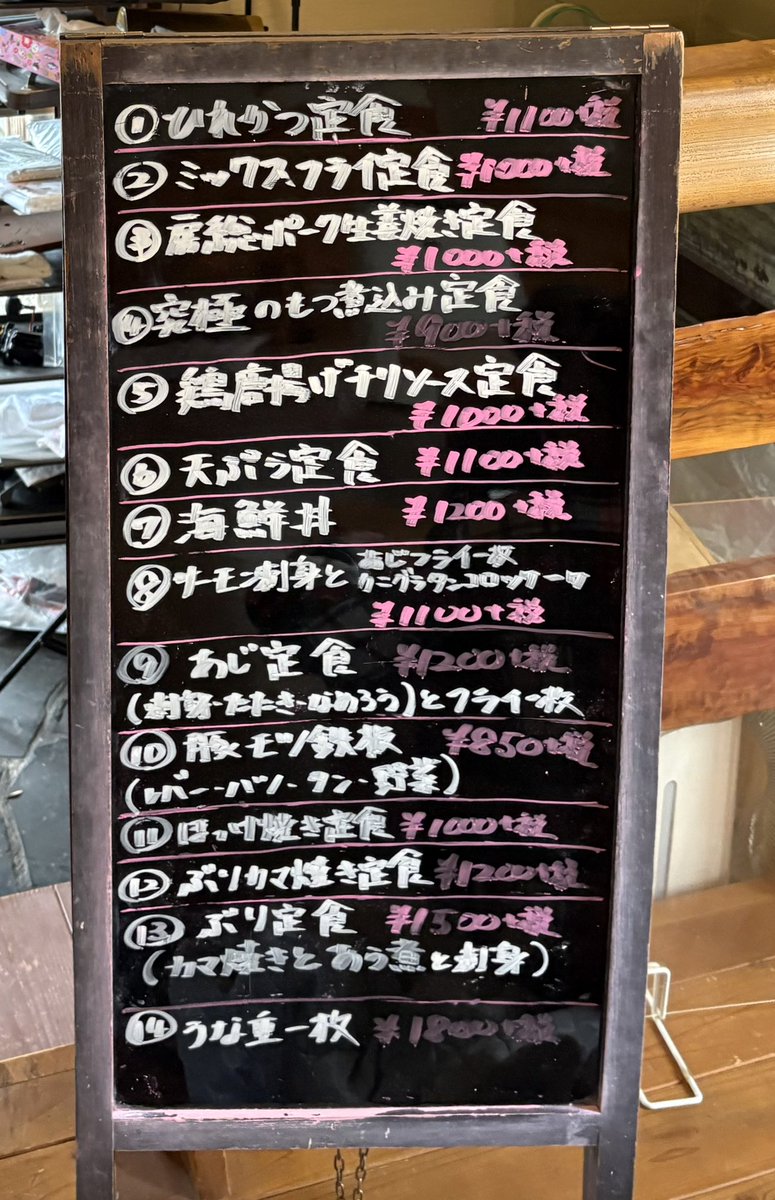 ① ひれかつ定食 ¥1100+税
② ミックスフライ定食 ¥1000+税
③ 房総ポーク生姜焼き定食
¥1000+税
④ 究極のもつ煮込み定食
¥900+税
⑤ 鶏唐揚げチリソース定食
¥1000+税
⑥ 天ぷら定食 ¥1100+税
⑦ 海鮮丼 ¥1200+税
⑧ サーモン刺身と あじフライ一枚
カニグラタンコロッケ一ケ
¥1100+税
⑨ あじ定食 ¥1200+税
(刺身・たたき・なめろう)とフライ一枚
⑩ 豚モツ鉄板 ¥850+税
(レバー・ハツ・タン・野菜)
⑪ ほっけ焼き定食 ¥1000+税
⑫ ぶりカマ焼き定食 ¥1200+税
⑬ ぶり定食 ¥1500+税
(カマ焼きとあら煮と刺身)
⑭ うな重一枚 ¥1800+税